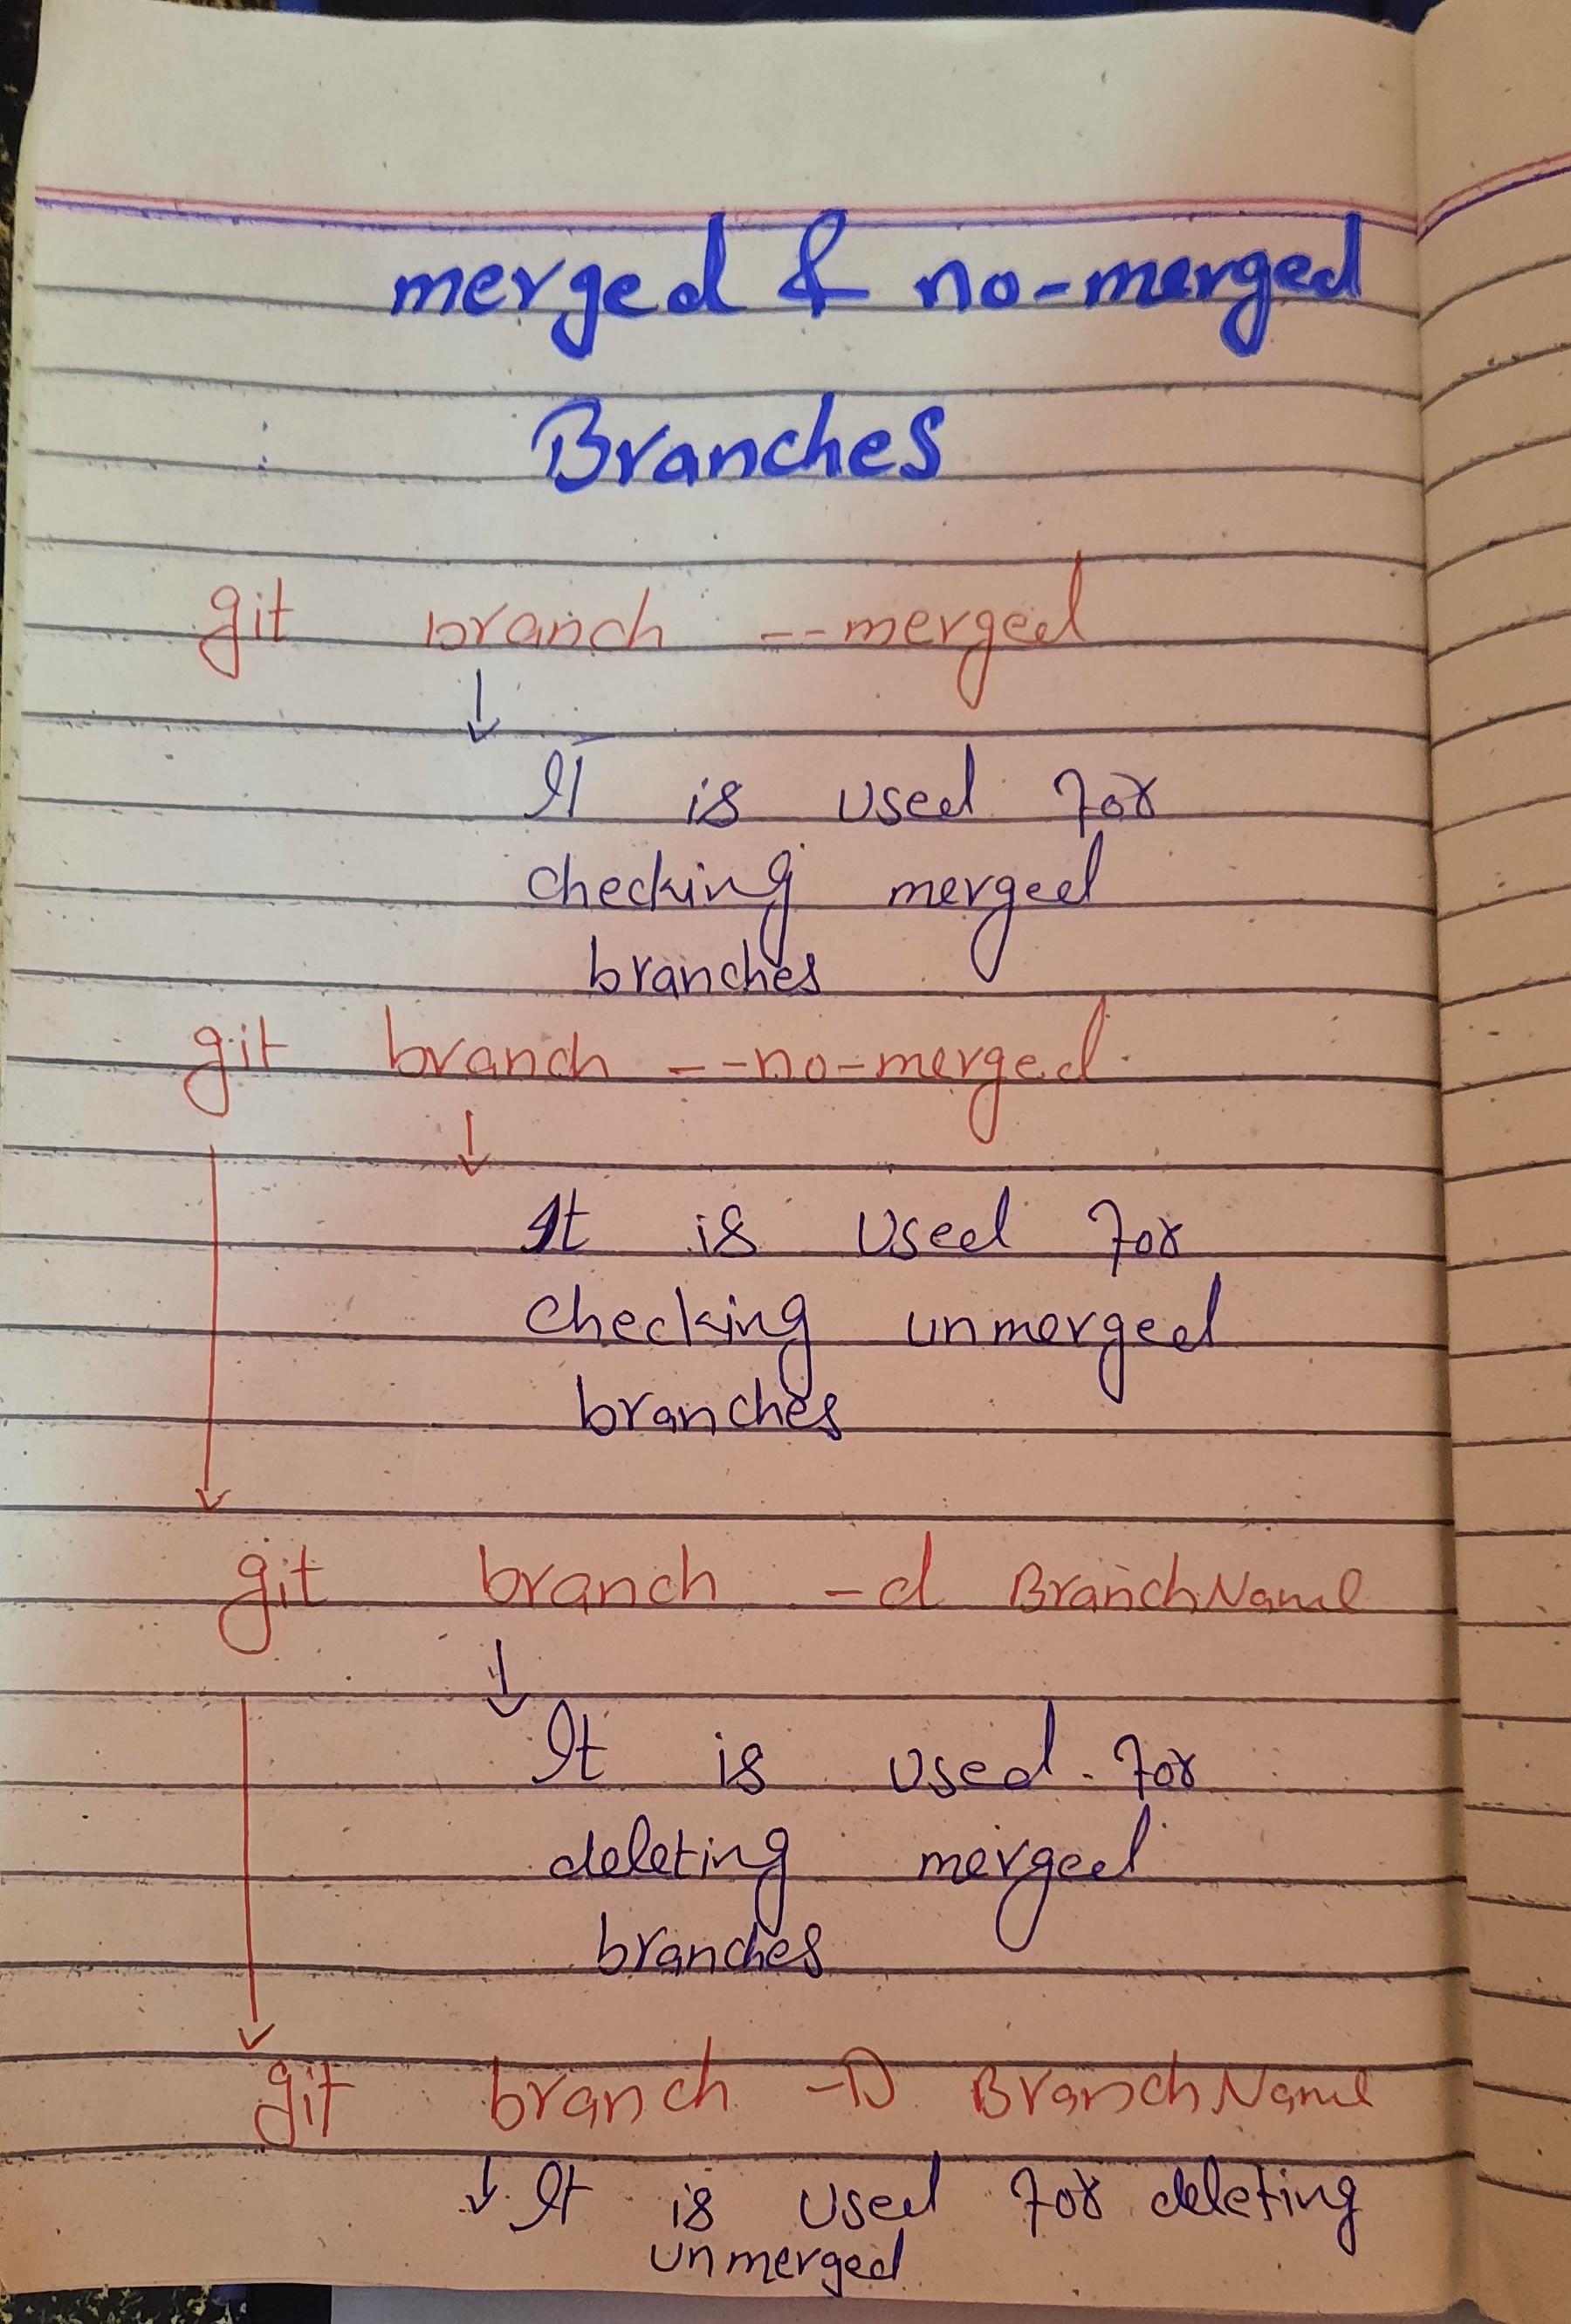 merged & no-merged
Branches
git branch --merged
It is used for
checking merged
branches
git branch --no-merged
It is used for
checking unmerged
branches
git branch -d BranchName
It is used for
deleting merged
branches
git branch -D BranchName
It is used for deleting
unmerged